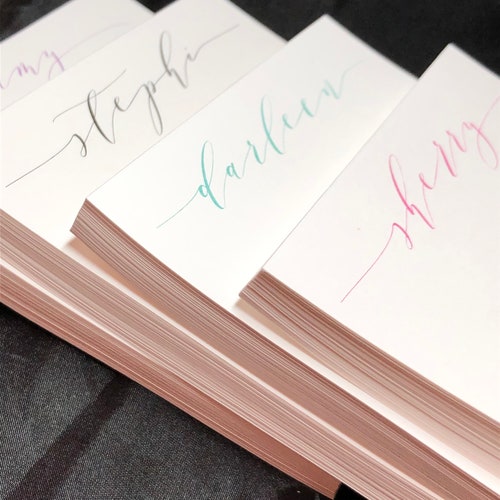 stephi
darleen
sherry